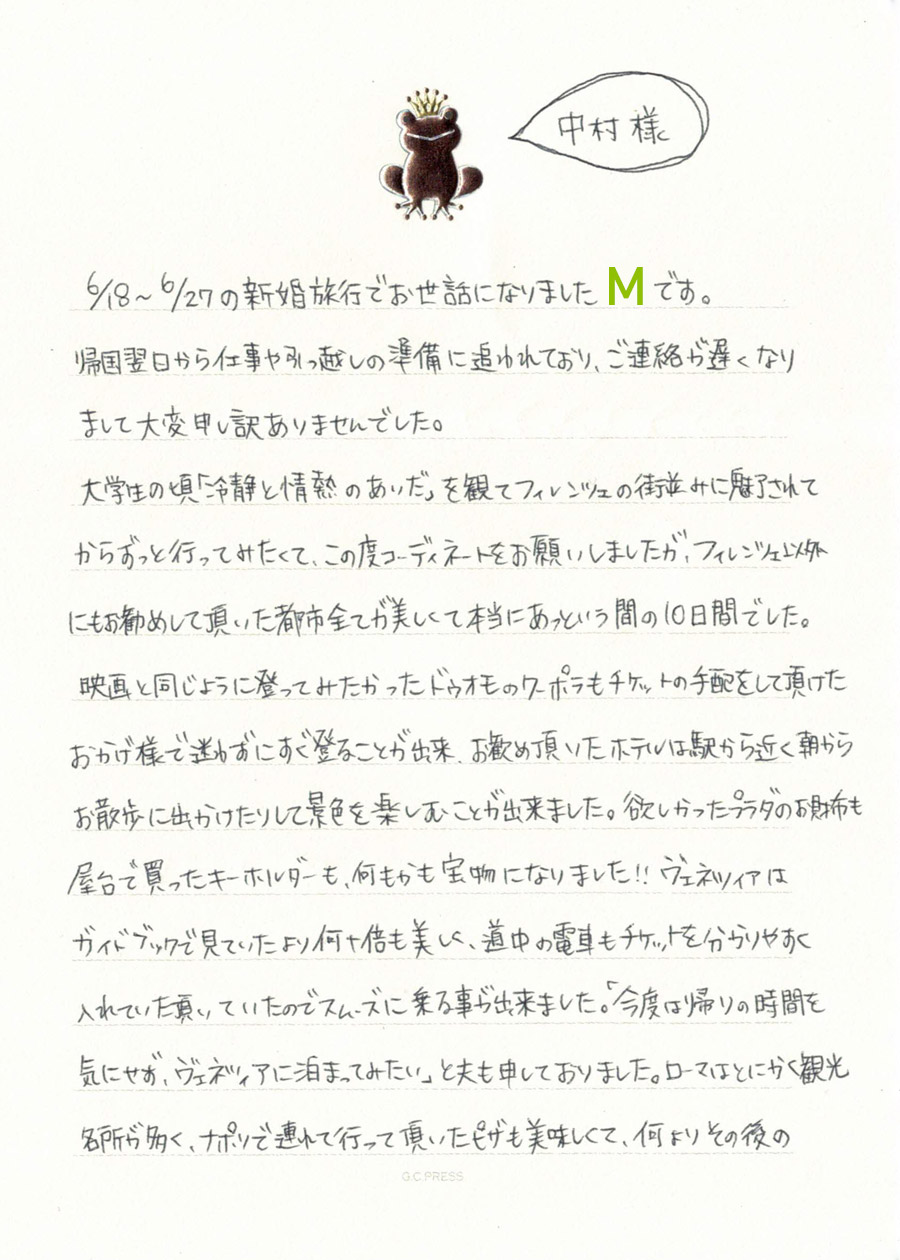 中村 様
6/18～6/27の新婚旅行でお世話になりました M です。
帰国翌日から仕事や引っ越しの準備に追われており、ご連絡が遅くなり
まして大変申し訳ありませんでした。
大学生の頃「冷静と情熱のあいだ」を観てフィレンツェの街並みに魅了されて
からずっと行ってみたくて、この度コーディネートをお願いしましたが、フィレンツェ以外
にもお勧めして頂いた都市全てが美しくて本当にあっという間の10日間でした。
映画と同じように登ってみたかったドゥオモのクーポラもチケットの手配をして頂けた
おかげ様で迷わずにすぐ登ることが出来、お勧め頂いたホテルは駅から近く朝から
お散歩に出かけたりして景色を楽しむことが出来ました。欲しかったプラダのお財布も
屋台で買ったキーホルダーも、何もかも宝物になりました!! ヴェネツィアは
ガイドブックで見ていたより何十倍も美しく、道中の電車もチケットを分かりやすく
入れていた頂いていたのでスムーズに乗る事が出来ました。「今度は帰りの時間を
気にせず、ヴェネツィアに泊まってみたい」と夫も申しておりました。ローマはとにかく観光
名所が多く、ナポリで連れて行って頂いたピザも美味しくて、何よりその後の
G.C.PRESS